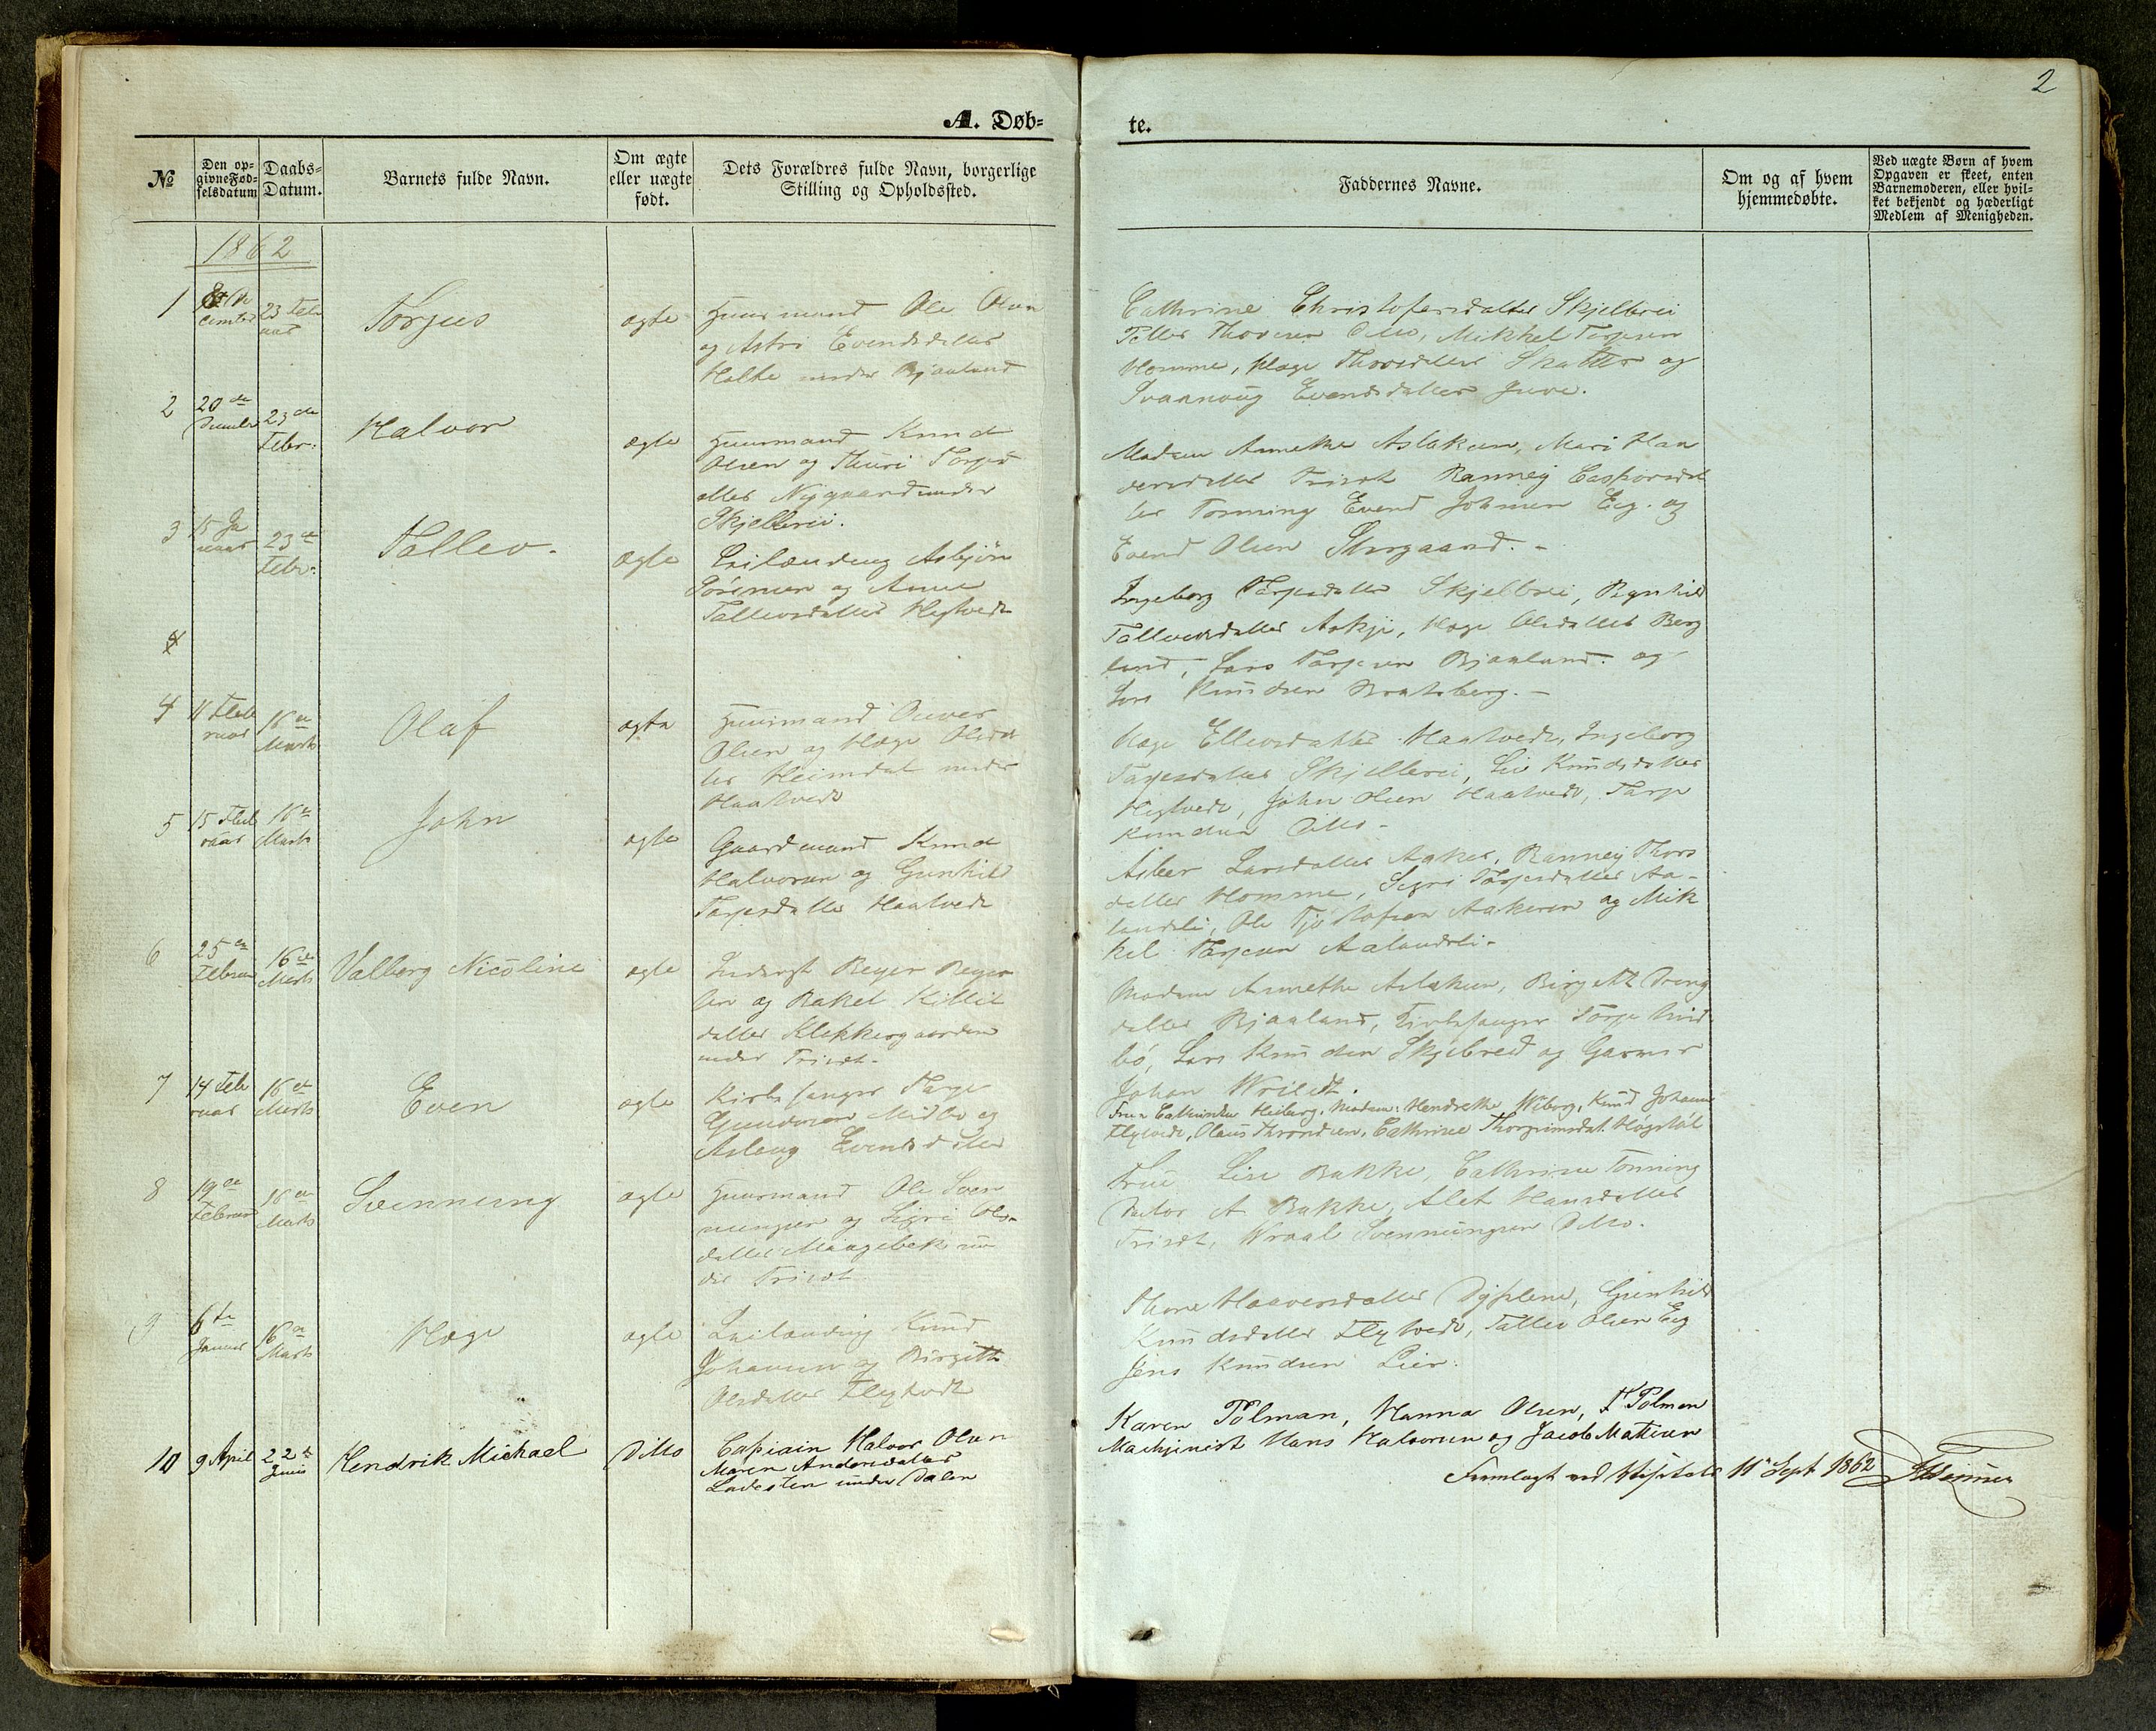 2
A. Døb-
te.
№
Den op-
givne Fød-
selsdatum
Daabs-
Datum.
Barnets fulde Navn.
Om ægte
eller uægte
født.
Dets Forældres fulde Navn, borgerlige
Stilling og Opholdssted.
Faddernes Navne.
Om og af hvem
hjemmedøbte.
Ved uægte Børn af hvem
Opgaven er skeet, enten
Barnemoderen, eller hvil-
ket bekjendt og hæderligt
Medlem af Menigheden.
1862
1
cember
23 Feb
uar
Torjus
ægte
Huusmand Ole Olsen
og Astri Evendsdatter
Holte under Bjaaland
Cathrine Christofersdatter Skjelbrei
Thorsen Ditto, Mikkel Terjesen
Homme, Hæge Thorsdatter Skatter og
Evendsdatter Juve.
2
20de
December
23de
Febr:
Halvor
ægte
Huusmand Knud
Olsen og Thuri Torjusd
atter Nygaard under
Skjelbrei.
Madam Annethe Aslaksen, Mari Haa
versdatter Triset Ranneij Caspersdat
ter Tonning Evend Johnsen Eeg. og
Evend Olsen Storgaard. -
3
15 Ja
nuar
23de
Febr:
Tallev.
ægte
Leilænding Asbjørn
og Anne
Tallevsdatter Heglvedt
Ingeborg Tarjesdatter Skjelbrei, Rgnhild
Tallevsdatter Askje, Hæge Olsdatter Berg
land, Lars Tarjesen Bjaaland. og
Lars Knudsen Bratsberg. -
4
4
11 Feb
ruar
16de
Marts
Olaf
ægte
Huusmand
Olsen og Hæge Olsdat
ter Heimdal under
Haatvedt
Hæge Ellevsdatter Haatvedt, Ingeborg
Tarjesdatter Skjelbrei, Liv Knudsdatter
Heglvedt, John Olsen Haatvedt, Tarje
Knudsen Ditto -
5
15 Feb
ruar
16de
Marts
John
ægte
Gaardmand Knud
Halvorsen og Gunhild
Tarjesdatter Haatvedt
Asber Larsdatter Aaker, Ranneij Thors
datter Homme, Sigri Tarjesdatter Aa-
landsli, Ole Tjostofsen Aakeren og Mik
kel Tarjesen Aalandsli -
6
25de
Februar
16de
Marts
Valberg Nicoline
ægte
Inderst Beyer Beyer
sen og Rakel Kittils
datter Klekkergaarden
under Triset. -
Madam Annethe Aslaksen, Birgitte
datter Bjaaland, Kirkesanger Tarje Mid
bø, Lars Knudsen Skjelbreid og Garver
Johan Wriedt.
7
14 Feb
ruar
16de
Marts
Even
ægte
Kirkesanger Tarje
Gundersen Midbø og
Aslaug Evendsdatter
Frue Cathinka Heiberg, Madam: Hendrekke Wiborg, Knud Johannes
Flytvedt, Olaus Throndsen, Cathrine Thorgrimsdat. Høgstøl
8
19de
Februar
16de
Marts
Svennung
ægte
Huusmand Ole Sven
nungsen og Sigri Ols-
datter Maagebek un
der Triset
Frue Lise Bakke, Cathrine Tonning
Doctor A Bakke, Alet Hansdatter
Triset, Wraal Svennungsen Ditto.
9
6te
Januar
16de
Marts
Hæge
ægte
Leilænding Knud
Johansen og Birgitte
Olsdatter Flytvedt
Thone Haaversdatter Dyplene, Gunhild
Knudsdatter Flytvedt, Tallev Olsen Eeg
Jens Knudsen Lien.
10
9 April
22de
Juni
Hendrik Michael
Ditto
Capiain Halvor Olsen
Maren Andersdatter
Ladesten under Dalen
Karen Polman, Hanna Olsen, F Polman
Machjinist Hans Halvorsen og Jacob Matisen
Fremlagt ved Visitats 11 Sept 1862